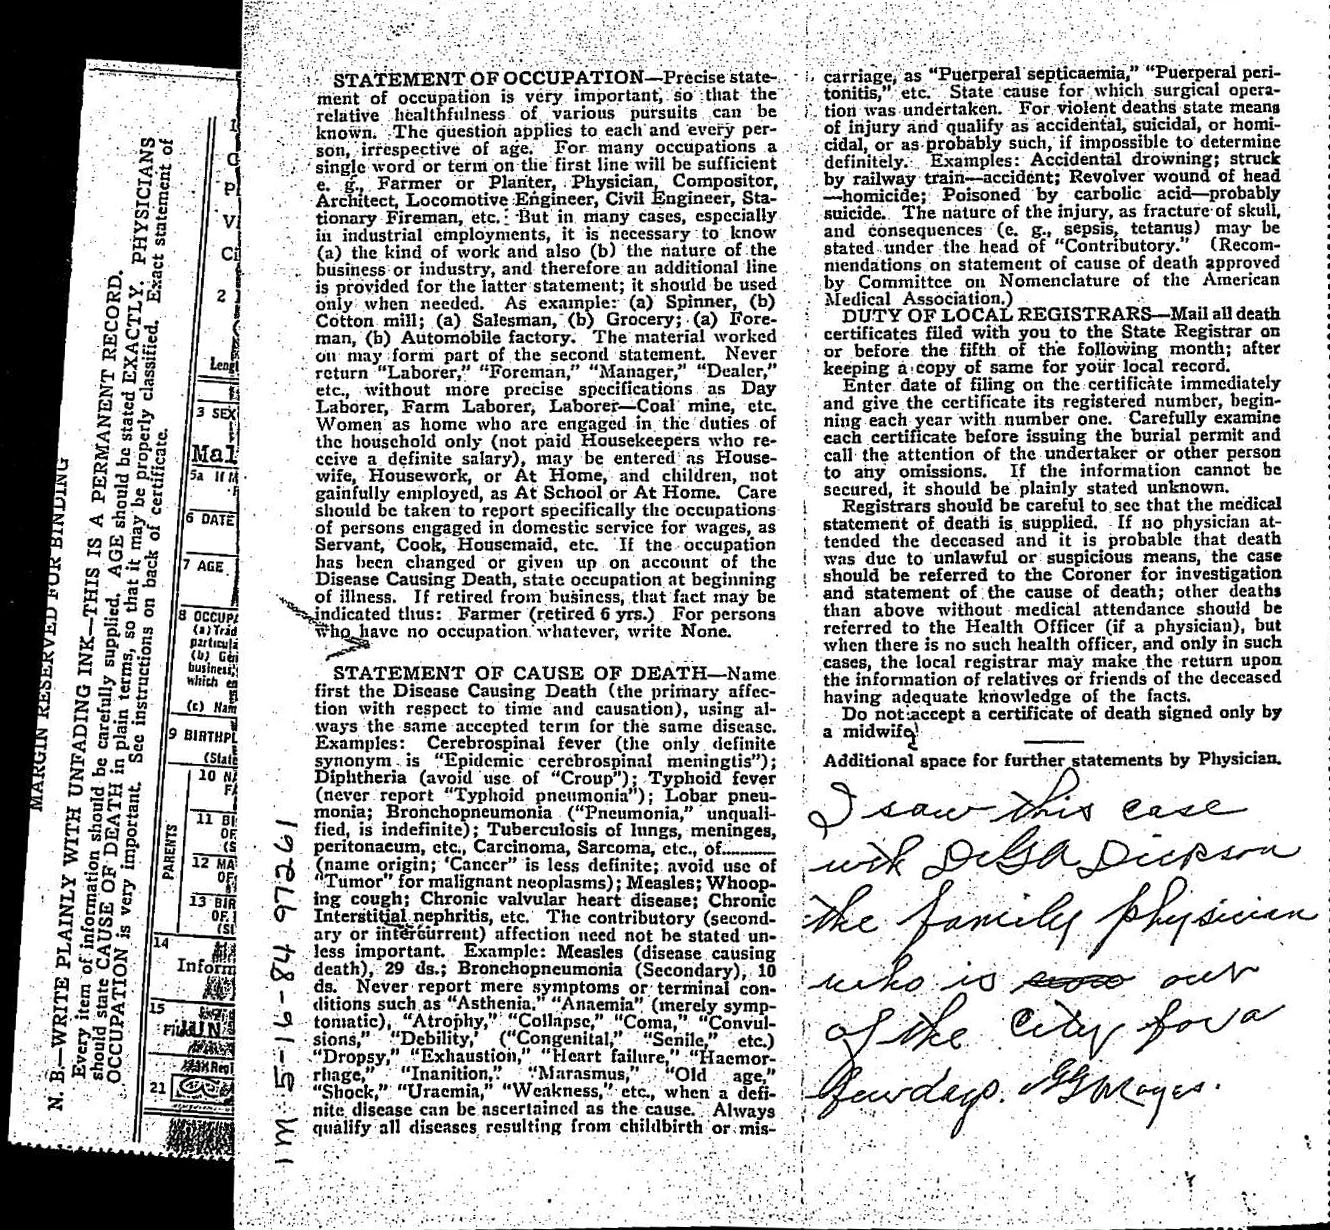 STATEMENT OF OCCUPATION—Precise state-
ment of occupation is very important, so that the
relative healthfulness of various pursuits can be
known. The question applies to each and every per-
son, irrespective of age. For many occupations a
single word or term on the first line will be sufficient
e. g., Farmer or Planter, Physician, Compositor,
Architect, Locomotive Engineer, Civil Engineer, Sta-
tionary Fireman, etc. But in many cases, especially
in industrial employments, it is necessary to know
(a) the kind of work and also (b) the nature of the
business or industry, and therefore an additional line
is provided for the latter statement; it should be used
only when needed. As example: (a) Spinner, (b)
Cotton mill; (a) Salesman, (b) Grocery; (a) Fore-
man, (b) Automobile factory. The material worked
on may form part of the second statement. Never
return "Laborer," "Foreman," "Manager," "Dealer,"
etc., without more precise specifications as Day
Laborer, Farm Laborer, Laborer—Coal mine, etc.
Women as home who are engaged in the duties of
the household only (not paid Housekeepers who re-
ceive a definite salary), may be entered as House-
wife, Housework, or At Home, and children, not
gainfully employed, as At School or At Home. Care
should be taken to report specifically the occupations
of persons engaged in domestic service for wages, as
Servant, Cook, Housemaid, etc. If the occupation
has been changed or given up on account of the
Disease Causing Death, state occupation at beginning
of illness. If retired from business, that fact may be
indicated thus: Farmer (retired 6 yrs.) For persons
who have no occupation whatever, write None.
STATEMENT OF CAUSE OF DEATH—Name
first the Disease Causing Death (the primary affec-
tion with respect to time and causation), using al-
ways the same accepted term for the same disease.
Examples: Cerebrospinal fever (the only definite
synonym is "Epidemic cerebrospinal meningtis");
Diphtheria (avoid use of "Croup"); Typhoid fever
(never report "Typhoid pneumonia"); Lobar pneu-
monia; Bronchopneumonia ("Pneumonia," unquali-
fied, is indefinite); Tuberculosis of lungs, meninges,
peritonaeum, etc., Carcinoma, Sarcoma, etc., of..........
(name origin; 'Cancer" is less definite; avoid use of
"Tumor" for malignant neoplasms); Measles; Whoop-
ing cough; Chronic valvular heart disease; Chronic
Interstitial nephritis, etc. The contributory (second-
ary or intercurrent) affection need not be stated un-
less important. Example: Measles (disease causing
death), 29 ds.; Bronchopneumonia (Secondary), 10
ds. Never report mere symptoms or terminal con-
ditions such as "Asthenia," "Anaemia" (merely symp-
tomatic), "Atrophy," "Collapse," "Coma," "Convul-
sions," "Debility," ("Congenital," "Senile," etc.)
"Dropsy," "Exhaustion," "Heart failure," "Haemor-
rhage," "Inanition," "Marasmus," "Old age,"
"Shock," "Uraemia," "Weakness," etc., when a defi-
nite disease can be ascertained as the cause. Always
qualify all diseases resulting from childbirth or mis-
carriage, as "Puerperal septicaemia," "Puerperal peri-
tonitis," etc. State cause for which surgical opera-
tion was undertaken. For violent deaths state means
of injury and qualify as accidental, suicidal, or homi-
cidal, or as probably such, if impossible to determine
definitely. Examples: Accidental drowning; struck
by railway train—accident; Revolver wound of head
—homicide; Poisoned by carbolic acid—probably
suicide. The nature of the injury, as fracture of skull,
and consequences (e. g., sepsis, tetanus) may be
stated under the head of "Contributory." (Recom-
mendations on statement of cause of death approved
by Committee on Nomenclature of the American
Medical Association.)
DUTY OF LOCAL REGISTRARS—Mail all death
certificates filed with you to the State Registrar on
or before the fifth of the following month; after
keeping a copy of same for your local record.
Enter date of filing on the certificate immediately
and give the certificate its registered number, begin-
ning each year with number one. Carefully examine
each certificate before issuing the burial permit and
call the attention of the undertaker or other person
to any omissions. If the information cannot be
secured, it should be plainly stated unknown.
Registrars should be careful to see that the medical
statement of death is supplied. If no physician at-
tended the deceased and it is probable that death
was due to unlawful or suspicious means, the case
should be referred to the Coroner for investigation
and statement of the cause of death; other deaths
than above without medical attendance should be
referred to the Health Officer (if a physician), but
when there is no such health officer, and only in such
cases, the local registrar may make the return upon
the information of relatives or friends of the deceased
having adequate knowledge of the facts.
Do not accept a certificate of death signed only by
a midwife
Additional space for further statements by Physician.
I saw this case
with Dr G A Dickson
the family physician
who is out
of the City for a
few days. G G Moyes.
1M-5-16-84 97261
MARGIN RESERVED FOR BINDING
N. B.—WRITE PLAINLY WITH UNFADING INK—THIS IS A PERMANENT RECORD.
Every item of information should be carefully supplied. AGE should be stated EXACTLY. PHYSICIANS
should state CAUSE OF DEATH in plain terms, so that it may be properly classified. Exact statement of
OCCUPATION is very important. See instructions on back of certificate.
2
Lengt
3 SEX
Mal
5a If M
6 DATE
7 AGE
8 OCCUPA
(a) Trad
particula
(b) Gen
business,
which em
(c) Nam
9 BIRTHPL
(State
PARENTS
10 NA
FA
11 BI
OF
(S
12 MA
OF
13 BIR
OF
(St
14
Inform
15
Fil JUN
21